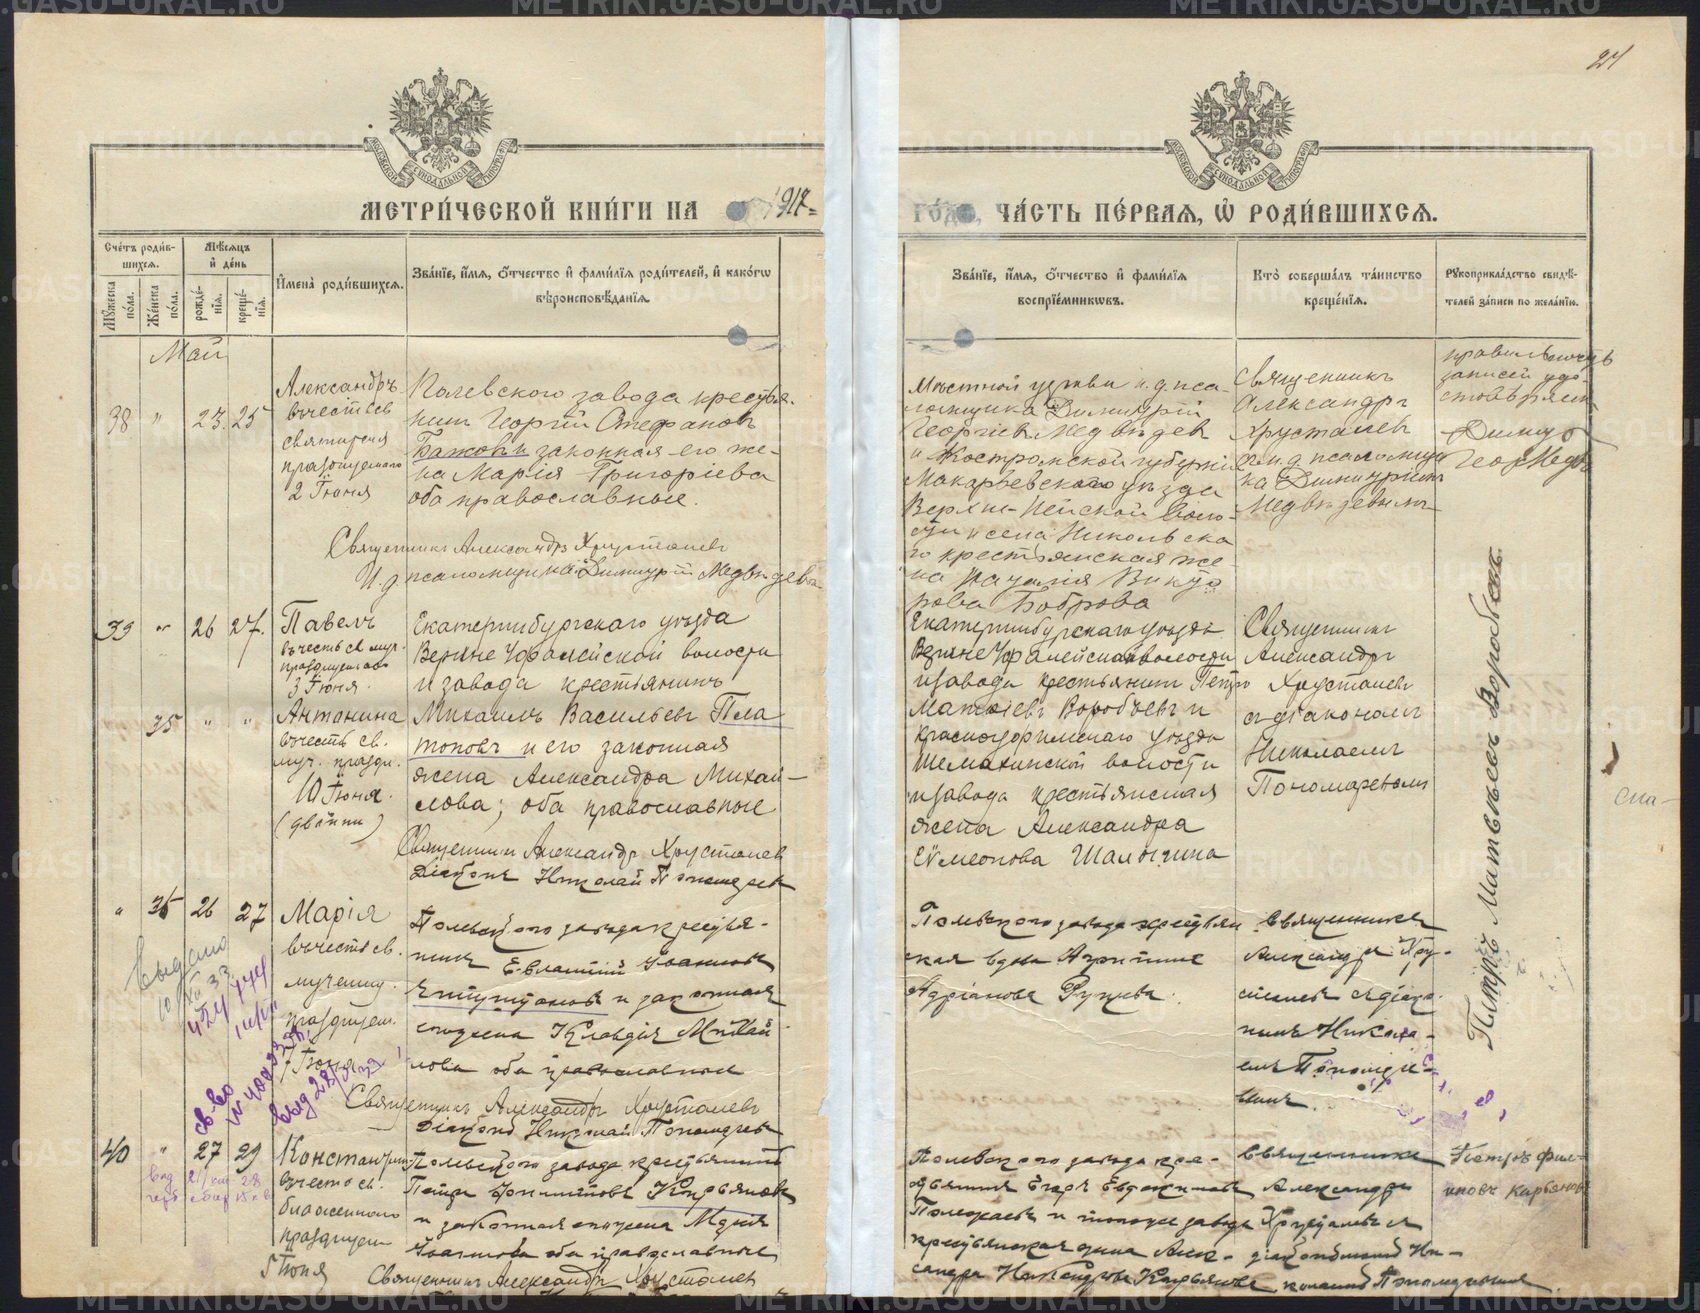 24
МЕТРИ́ЧЕСКОЙ КНИ́ГИ НА 1917
ГО́ДЪ, ЧА́СТЬ ПЕ́РВАЯ, Ѡ҆ РОДИ́ВШИХСЯ.
Сче́тъ роди́в-
шихся.
Мѣ́сяцъ
и҆ де́нь
Мꙋ́жеска
по́ла.
Же́нска
по́ла.
рожде́-
нїя.
креще́-
нїя.
И҆мена̀ роди́вшихся.
Зва́нїе, и҆́мя, ѻ҆́тчество и҆ фами́лїя роди́телей, и҆ како́гѡ
вѣроисповѣ́данїя.
Зва́нїе, и҆́мя, ѻ҆́тчество и҆ фами́лїя
воспрїе́мникѡвъ.
Кто̀ соверша́лъ та́инство
креще́нїя.
Рꙋкоприкла́дство свидѣ́-
телей за́писи по жела́нїю.
Май
38 " 23. 25
Александръ
въ честь св
празднуемаго
2 Іюня
Полевского завода крестья-
нинъ Георгій Стефановъ
Бажовъ и законная его же-
на Марія Григоріева
оба православные.
Священникъ Александръ Хрусталевъ
И. д псаломщика Димитрій Медвѣдевъ
Местной церкви и. д. пса-
ломщика Димитрій
Георгіевъ Медвѣдевъ
и Костромской губерніи
Макарьевскаго уѣзда
Верхне-Нейской воло-
сти и села Никольска
го крестьянская же-
на Наталія Викто
рова Боброва
Священникъ
Александръ
Хрусталевъ
с и. д псаломщи
ка Димитріемъ
Медвѣдевымъ
правильность
записей удо-
стовѣряетъ
Димит
Геор Медв
39 " 26 27.
Павелъ
въ честь св муч.
празднуемаго
3 Іюня.
Екатеринбургскаго уѣзда
Верхне Уфалейской волости
и завода крестьянинъ
35 " "
Антонина
въ честь св.
муч. праздн.
10 Іюня.
(двойни)
Михаилъ Васильевъ Пла
тоновъ и его законная
жена Александра Михай-
лова; оба православные
Священникъ Александръ Хрусталев
Діаконъ Николай Пономарев
Екатеринбургскаго уѣзда
Верхне Уфалейской волости
и завода крестьянинъ Петръ
Матвіевъ Воробьевъ и
Красноуфимскаго уѣзда
Шемахинской волости
и завода крестьянская
жена Александра
Симеонова
Священникъ
Александръ
Хрусталевъ
с діакономъ
Николаемъ
Пономаревымъ
Петръ Матвѣевъ Воробьевъ
" 36 26 27
Марія
въ честь св.
мучениц.
празднуем.
7 Іюня
Полевского завода крестья-
нинъ Евлампій Іоанновъ
и законная
его жена Клавдія Михай
лова оба православные
Священникъ Александръ Хрусталевъ
Діаконъ Николай Пономаревъ
Полевского завода крестьян
ская вдова Агрипина
Адріанова
Священникъ
Александръ Хру-
сталевъ с діако-
номъ Никола-
емъ Пономаре-
вымъ
выдано
40 " 27 29
Константинъ
въ честь св.
блаженнаго
празднуем
5 Іюня
Полевского завода крестьянинъ
Петръ Филипповъ Кирьяновъ
и законная его жена Марія
Іоаннова оба православные
Священникъ Александръ Хрусталев
Полевского завода кре-
стьянинъ Егоръ Евдокимовъ
Полежаевъ и того же завода
крестьянская дина Алек-
сандра Кирьянова
Священникъ
Александръ
Хрусталевъ с
діакономъ Ни-
колаемъ Пономаревымъ
Петръ Фил-
иповъ Кирьяновъ